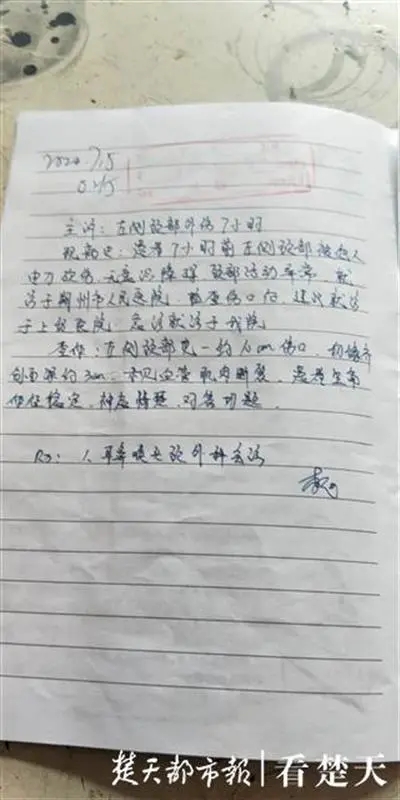 2020.7.5
0:45
主诉：左侧颈部外伤7小时
现病史：患者7小时前左侧颈部被他人
用刀砍伤，无意识障碍，颈部活动异常，就
诊于荆州市人民医院，检查伤口后，建议就诊
于上级医院，急诊就诊于我院
查体：左侧颈部见一约 cm伤口，
创面深约3cm，未见血管肌肉断裂，患者生命
体征稳定，神志清楚，对答切题。
Rx：1、耳鼻喉头颈外科会诊
楚天都市報 看楚天